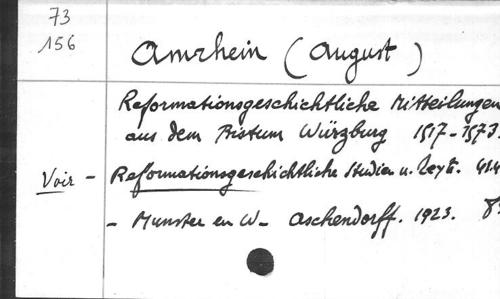 73
156
Amrhein (August)
Reformationsgeschichtliche Mitteilungen
aus dem Bistum Würzburg 1517-1573.
Voir - Reformationsgeschichtliche Studien u. Texte. 41.4
- Munster en W- Aschendorff. 1923. 8